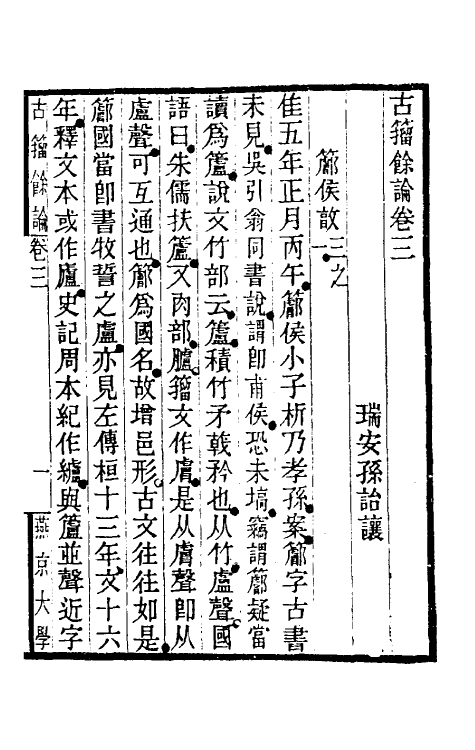 古籀餘論卷三
瑞安孫詒讓
侯敦 三之一
隹五年正月丙午侯小子析乃孝孫案字古書
未見吳引翁同書說謂即甫侯恐未塙竊謂疑當
讀爲籚說文竹部云籚積竹矛戟矜也从竹盧聲國
語曰朱儒扶籚又肉部臚籀文作膚是从膚聲即从
盧聲可互通也爲國名故增邑形古文往往如是
國當即書牧誓之盧亦見左傳桓十三年文十六
年釋文本或作廬史記周本紀作纑與籚並聲近字
古籀餘論 卷三 一 燕京大學